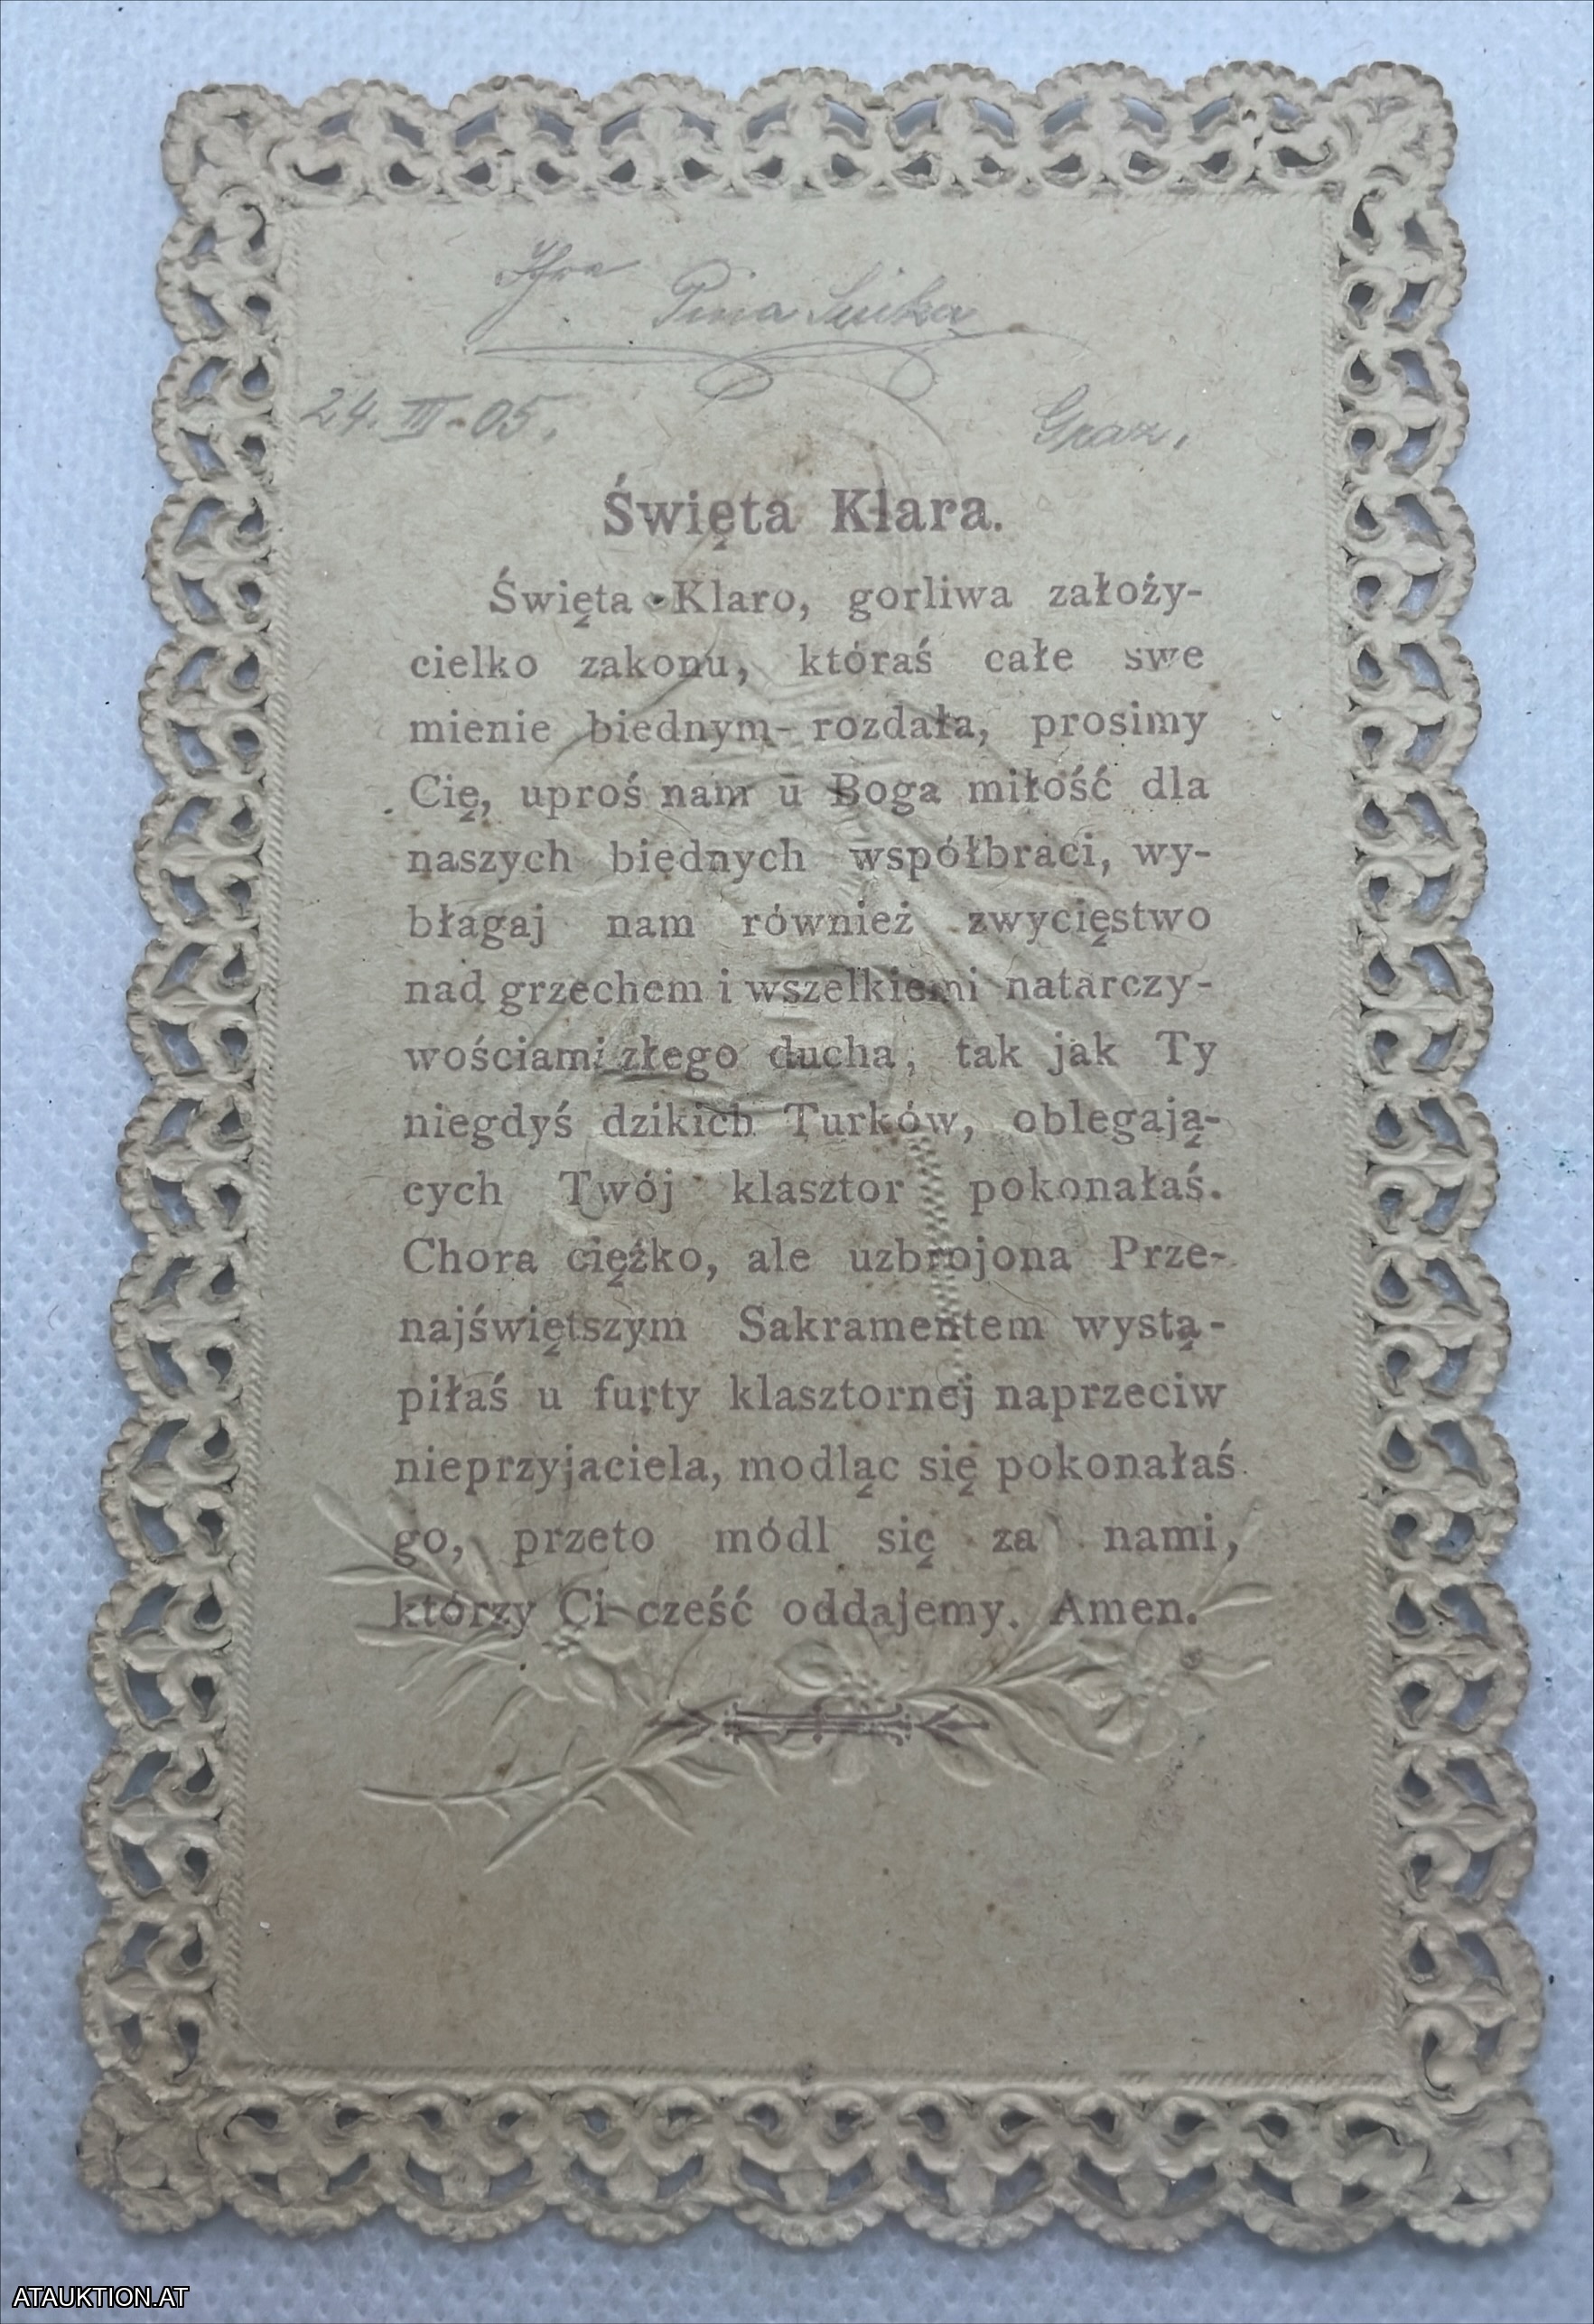 Ihre
24. III. 05.
Graz.
Święta Klara.
Święta Klaro, gorliwa założy-
cielko zakonu, któraś całe swe
mienie biednym rozdała, prosimy
Cię, uproś nam u Boga miłość dla
naszych biednych współbraci, wy-
błagaj nam również zwycięstwo
nad grzechem i wszelkiemi natarczy-
wościami złego ducha, tak jak Ty
niegdyś dzikich Turków, oblegają-
cych Twój klasztor pokonałaś.
Chora ciężko, ale uzbrojona Prze-
najświętszym Sakramentem wystą-
piłaś u furty klasztornej naprzeciw
nieprzyjaciela, modląc się pokonałaś
go, przeto módl się za nami,
którzy Ci cześć oddajemy. Amen.
ATAUKTION.AT